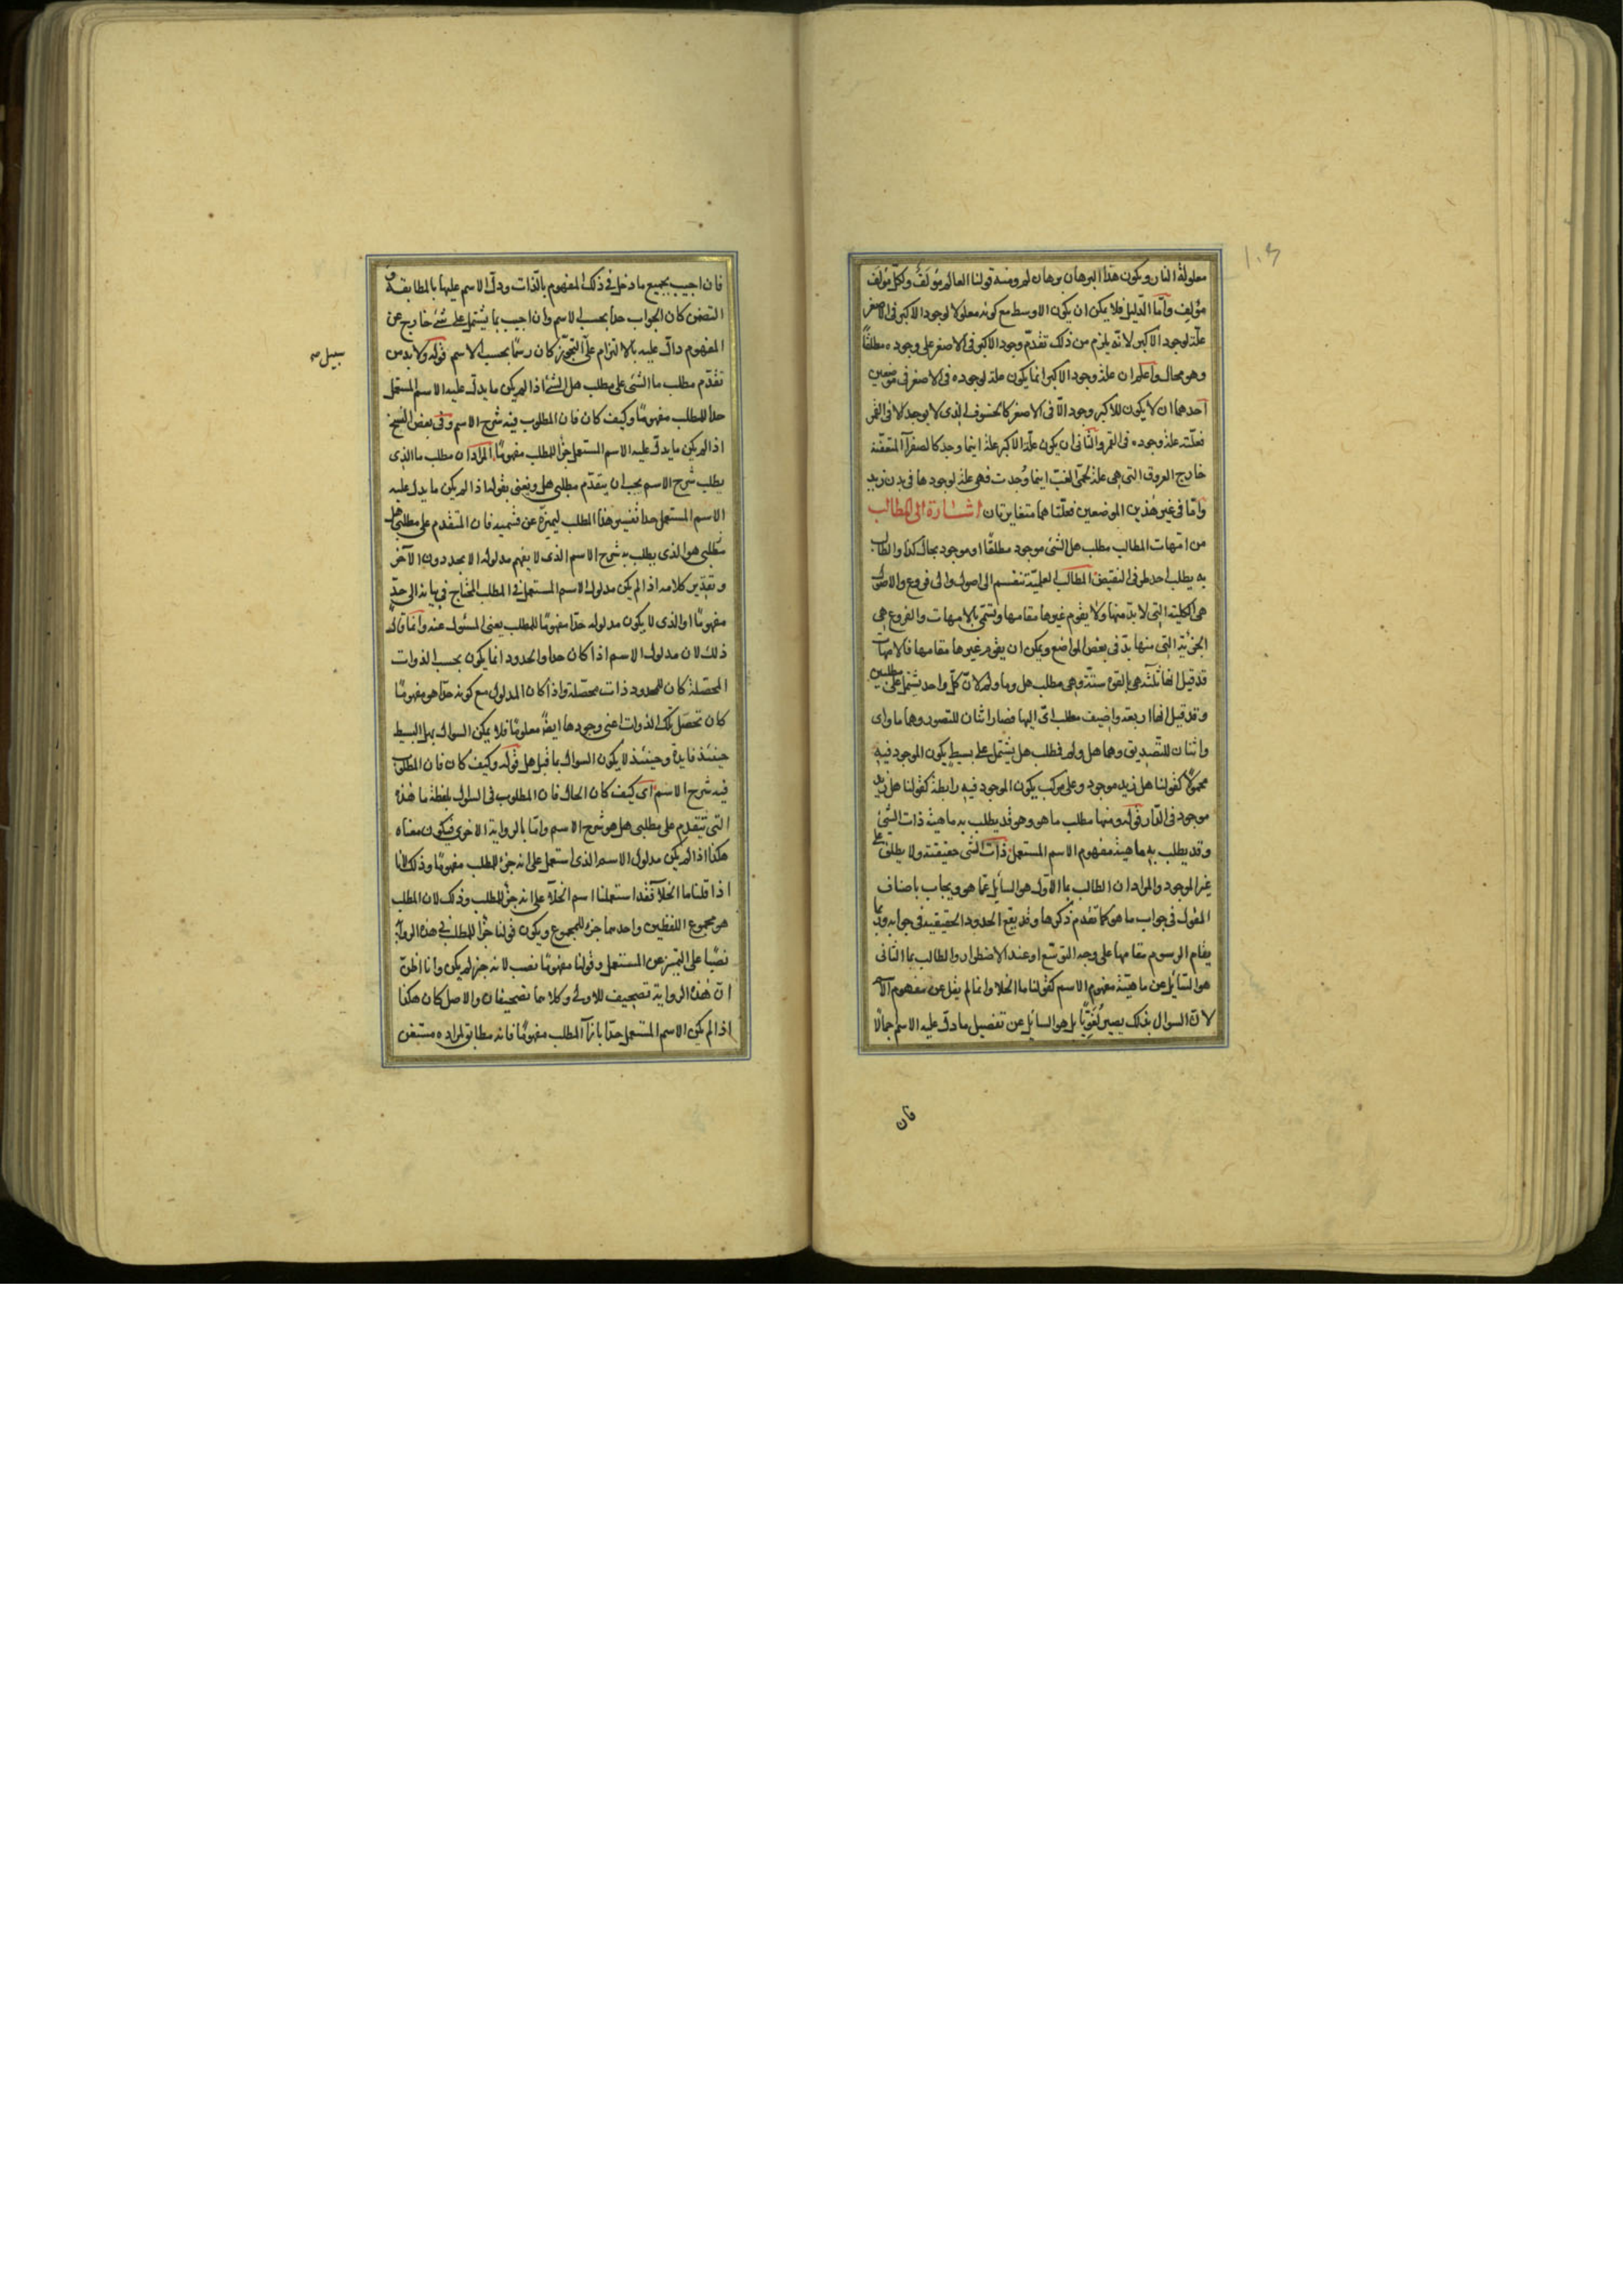 ١٠٣
معلولة النار ويكون هذا البرهان برهان لم ومنه قولنا العالم مؤلَف ولكل مؤلف
مؤلِف وامّا الدّليل فلا يمكن ان يكون الاوسط مع كونه معلولا لوجود الاكبر فى الاصغر
علّة لوجود الاكبر لانّه يلزم من ذلك تقدّم وجود الاكبر فى الاصغر على وجوده مطلقًا
وهو محال واعلم ان علة وجود الاكبر انما يكون علة لوجوده فى الاصغر فى موضعين
احدهما ان لا يكون للاكبر وجود الّا فى الاصغر كالخسوف الذى لا يوجد الا فى القمر
فعلّته علة وجوده فى القمر والثانى ان يكون علّة الاكبر علة اينما وجد كالصفرآ المتعفنة
خارج العروق التى هى علة لحمّى الغبّ اينما وُجدت فهى علة لوجودها فى بدن زيد
وامّا فى غير هذين الموضعين فعلّتاهما متغايرتان اشارة الى المطالب
من امّهات المطالب مطلب هل الشئ موجود مطلقًا او موجود بحال كذا والطالب
به يطلب احد طرفى النقيض المطالب العلميّة تنقسم الى اصول والى فروع والاصول
هى الكلية التى لا بدّ منها ولا يقوم غيرها مقامها وتسمّى بالامهات والفروع هى
الجزئية التى منها بدّ فى بعض المواضع ويمكن ان يقوم غيرها مقامها فالامهات
قد قيل انها ثلثة هى بالقوة ستّة وهى مطلب هل وما ولم لانّ كلّ واحد يشتمل على مطلبين
وقد قيل انها اربعة واضيف مطلب اىّ اليها فصار اثنان للتصور وهما ما واى
واثنان للتّصديق وهما هل ولم فمطلب هل يشتمل على بسيط يكون الموجود فيه
محمولًا كقولنا هل زيد موجود وعلى مركب يكون الموجود فيه رابطة كقولنا هل زيد
موجود فى الدّار قوله ومنها مطلب ما هو وهو قد يطلب به ماهية ذات الشئ
وقد يطلب به ماهية مفهوم الاسم المستعمل ذات الشى حقيقته ولا يطلق على
غير الموجود والمراد ان الطالب بما الاول هو السايل عمّا هو ويجاب باصناف
المقول فى جواب ما هو كما تقدم ذكرها وقد يقع الحدود الحقيقية فى جوابه وربّما
يقام الرسوم مقامها على وجه التوسّع او عند الاضطرار والطالب بما الثانى
هو السّائل عن ماهيّة مفهوم الاسم كقولنا ما الخلا وانما لم يقل عن مفهوم الاسم
لانّ السوال بذلك يصير لُغَويًّا بل هو السايل عن تفصيل ما دلّ عليه الاسم اجمالًا
فان
فان اجيب بجميع ما دخل فى ذلك المفهوم بالذات ودلّ الاسم عليها بالمطابقة و
التضمن كان الجواب حدا بحسب الاسم وان اجيب بما يشتمل على شئ خارج عن
المفهوم دالّ عليه بالالتزام على التجوّز كان رسمًا بحسب الاسم قوله ولا بد من
تقدّم مطلب ما الشئ على مطلب هل الشئ اذا لم يكن ما يدلّ عليه الاسم المستعمل
حدا للمطلب مفهومًا وكيف كان فان المطلوب فيه شرح الاسم وفى بعض النسخ
اذا لم يكن ما يدلّ عليه الاسم المستعمل جزًا للمطلب مفهومًا المراد ان مطلب ما الذى
يطلب شرح الاسم يجب ان يتقدّم مطلبى هل ويعنى بقوله اذا لم يكن ما يدل عليه
الاسم المستعمل حدا تفسير هذا المطلب ليميزه عن قسيمه فان المتقدم على مطلبى هل
مطلبى هو الذى يطلب به شرح الاسم الذى لا يفهم مدلوله الا بحد دون الآخر
وتقدير كلامه اذا لم يكن مدلول الاسم المستعمل فى المطلب المحتاج فى بيانه الى حدّ
مفهومًا او الذى لا يكون مدلوله حدّا مفهومًا للمطلب يعنى المسئول عنه وانما قال
ذلك لان مدلول الاسم اذا كان حدا والحدود انما يكون بحسب الذوات
المحصّلة كان للمحدود ذات محصّلة واذا كان المدلول مع كونه حدّا هو مفهومًا
كان تحصّل تلك الذوات اعنى وجودها ايضً معلومًا فلا يمكن السوال بهل البسيط
حينئذ فايدة وحينئذ لا يكون السوال بما قبل هل قوله وكيف كان فان المطلوب
فيه شرح الاسم اى كيف كان الحال فان المطلوب فى السئول بلفظة ما هذه
التى تتقدم على مطلبى هل هو شرح الاسم وامّا بالرواية الاخرى فيكون معناه
هكذا اذا لم يكن مدلول الاسم الذى استعمل على انه جزء للمطلب مفهومًا وذلك لانا
اذا قلنا ما الخلآ فقد استعملنا اسم الخلآ على انه جزء للمطلب وذلك لان المطلب
هو مجموع اللفظين واحدهما جزء للمجموع ويكون قولنا جزًا للمطلب فى هذه الرواية
نصبًا على التميز عن المستعمل وقولنا مفهومًا نصب لانه خبر لم يكن وانا اظنّ
انّ هذه الرواية تصحيف للاولى وكلاهما تصحيفان والاصل كان هكذا
اذا لم يكن الاسم المستعمل حدّا بازآ المطلب مفهومًا فانه مطابق لمراده مستغن